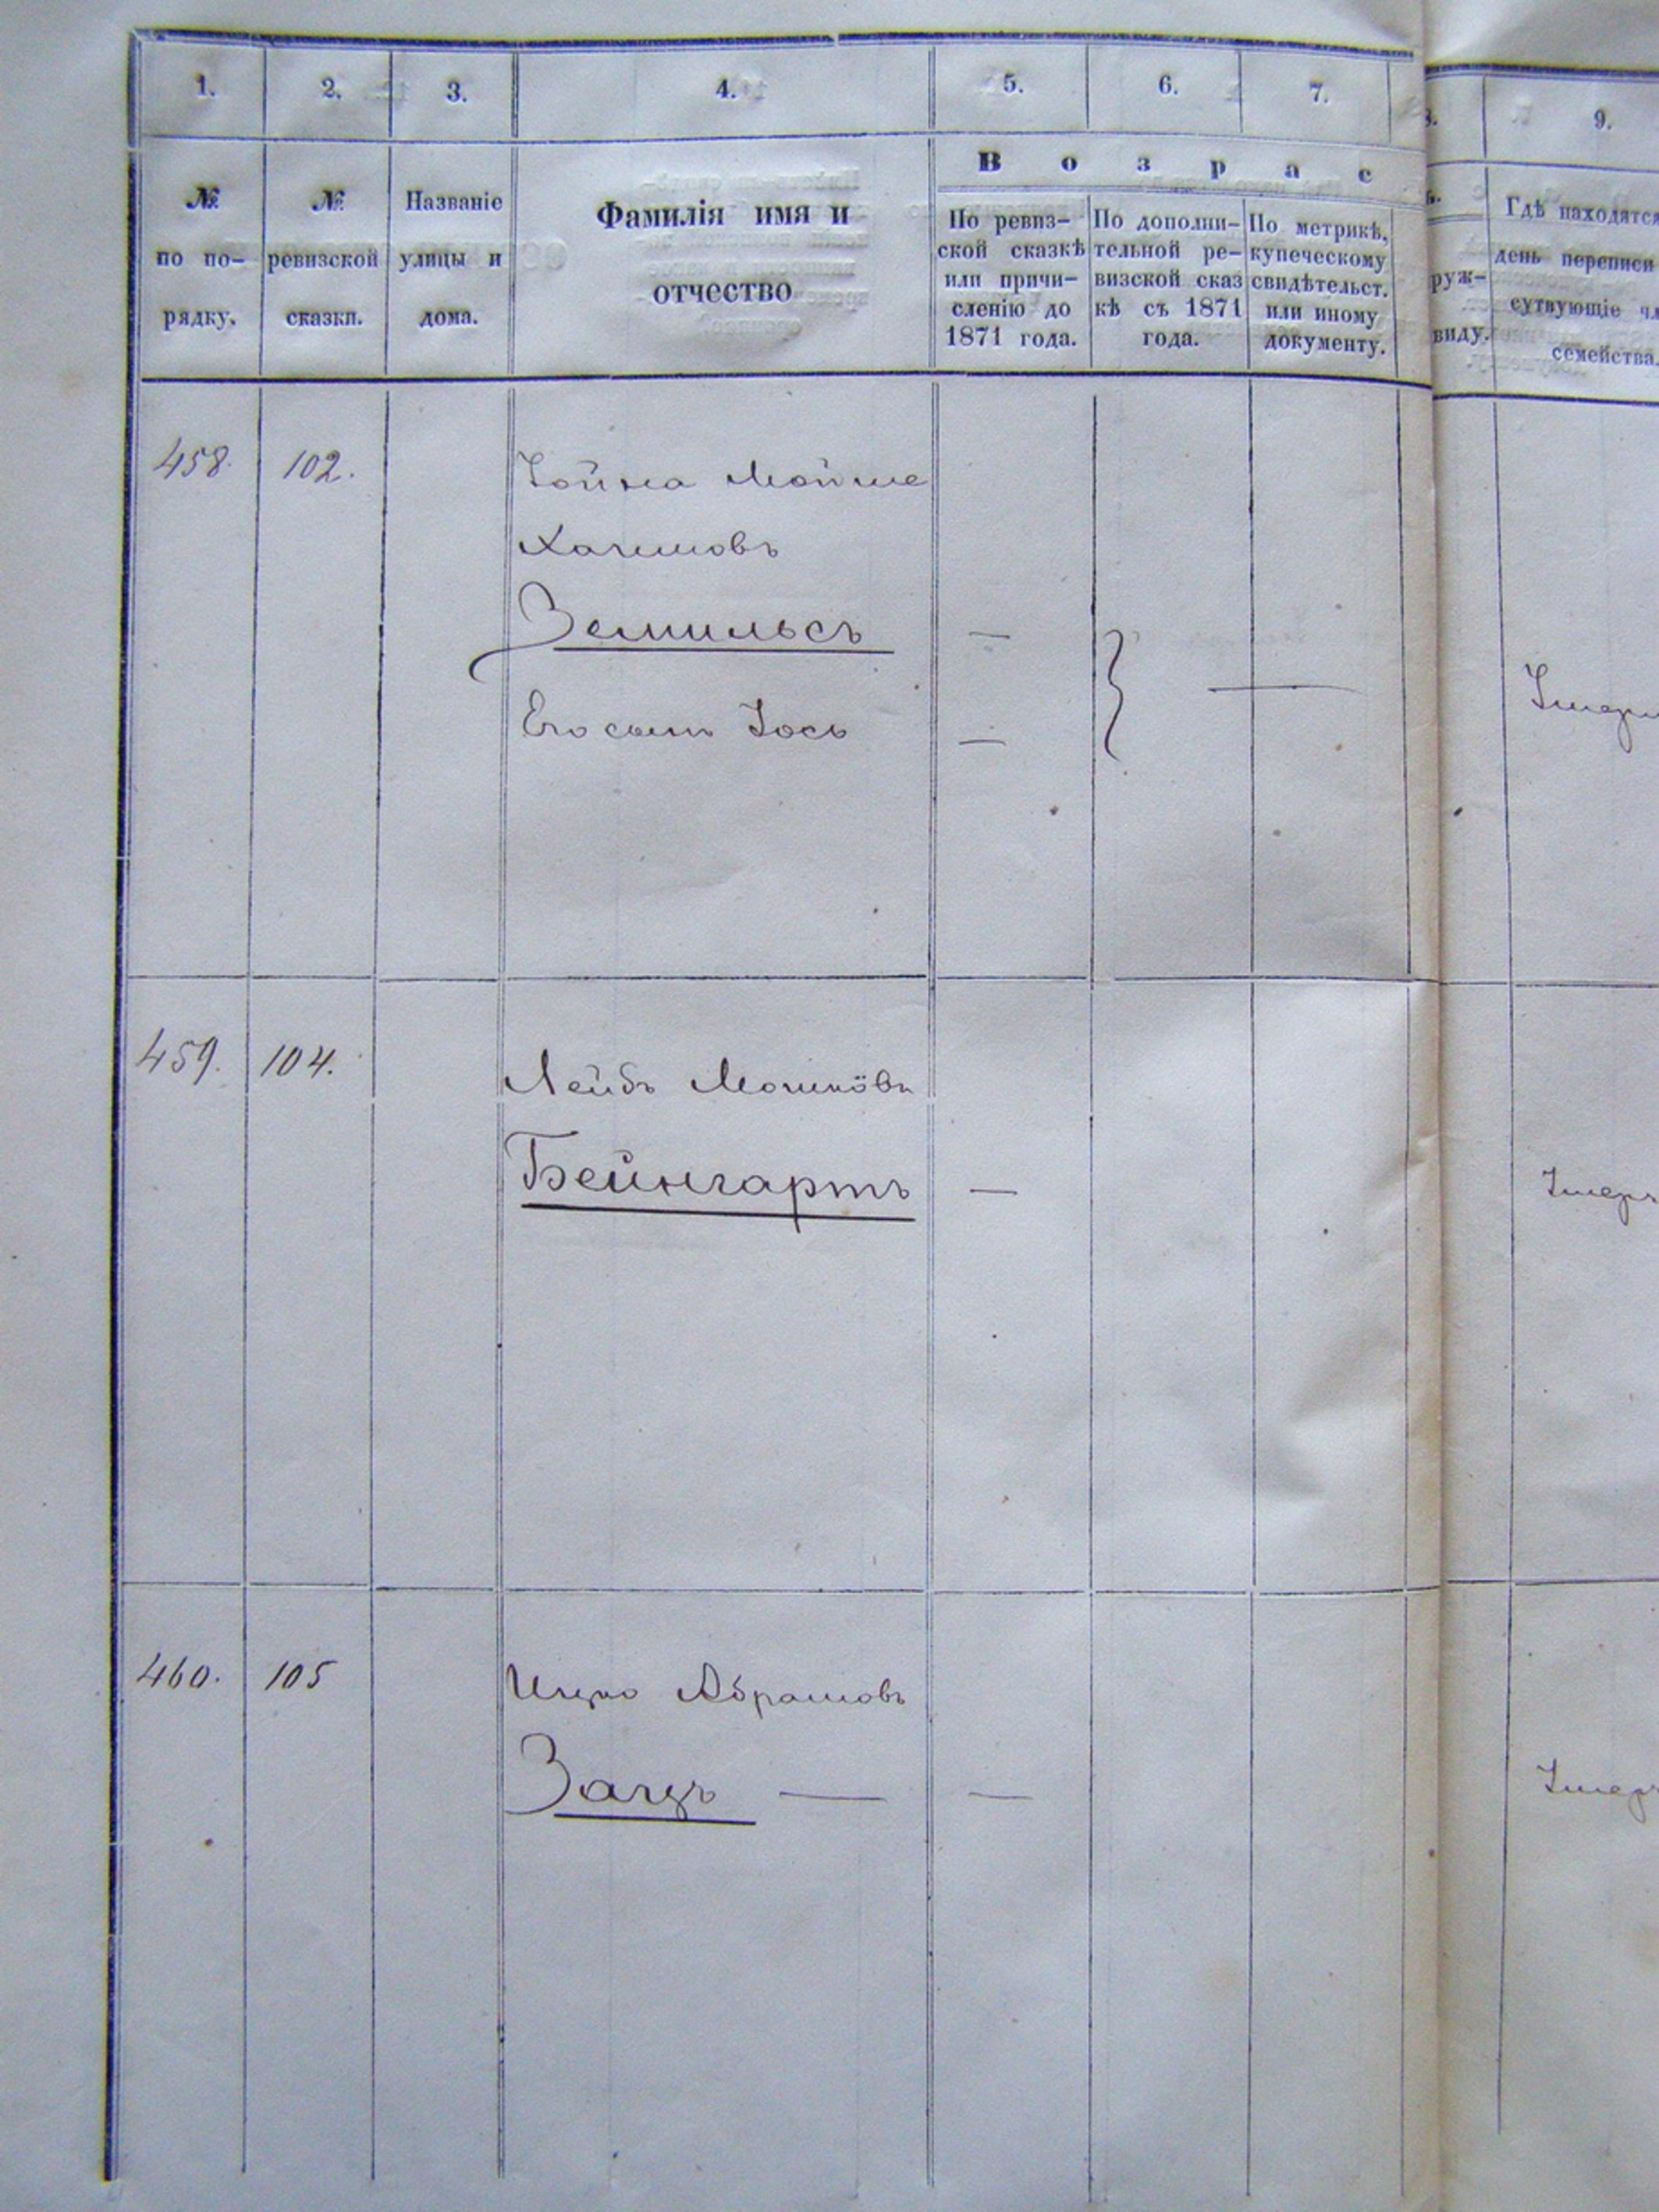 1. 2. 3. 4. 5. 6. 7. 9.
В о з р а с
№ по по- рядку.
№ ревизской сказки.
Названіе улицы и дома.
Фамилія имя и
отчество
По ревиз-
ской сказкѣ
или причи-
сленію до
1871 года.
По дополни-
тельной ре-
визской сказ
кѣ съ 1871
года.
По метрикѣ,
купеческому
свидѣтельст.
или иному
документу.
руж-
виду.
Гдѣ находятся
день переписи
сутвующіе чл
семейства.
458. 102. Іойна Мойше
Хаимовъ
Земильсъ —
Его сынъ Іось —
459. 104. Лейбъ Мошковъ
Бейнгартъ —
460. 105 Ицко Абрамовъ
Зацъ — —